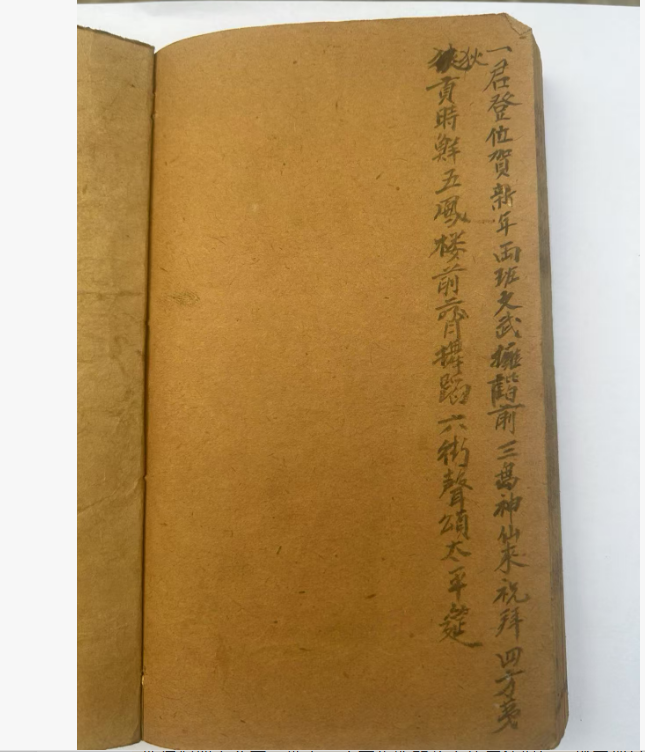 一君登位賀新年両班文武擁前三島神仙來祝拜四方夷
狄貢時鮮五鳳楼前齊蹈六街聲頌太平筵